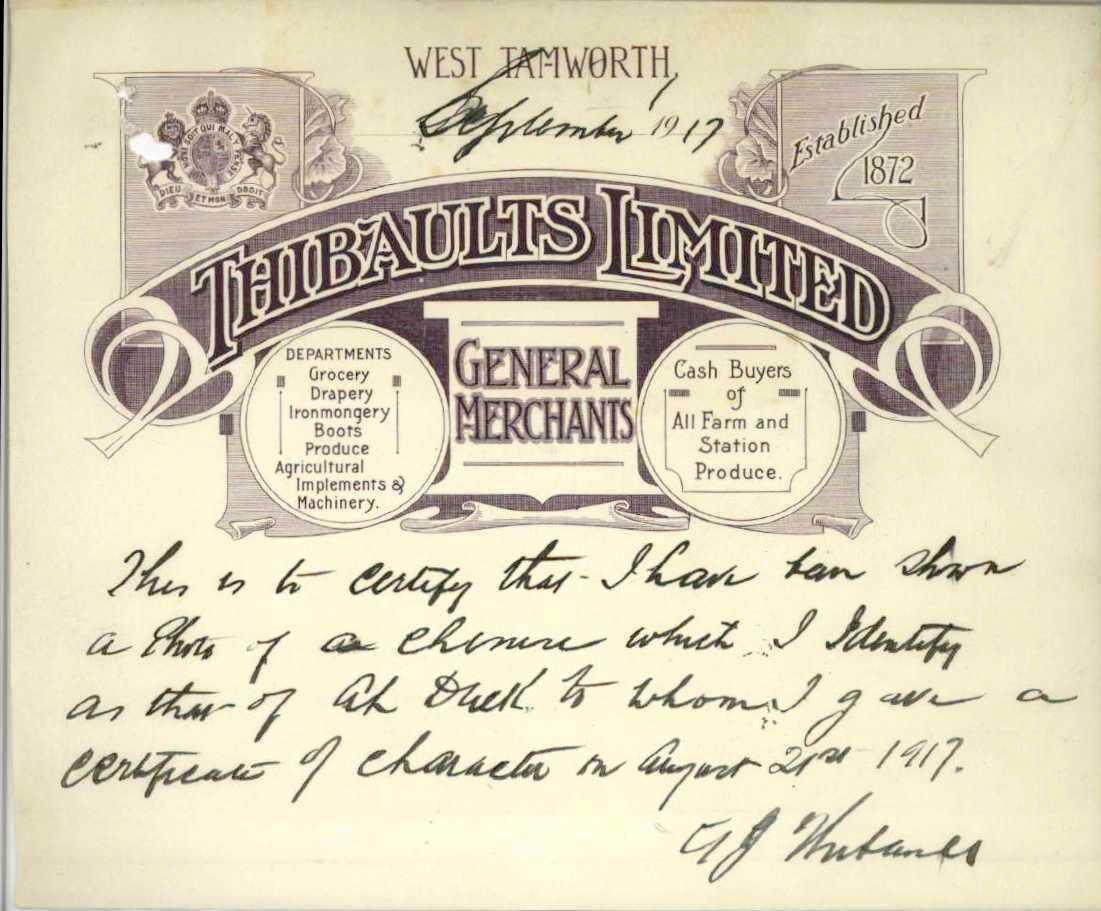 WEST TAMWORTH,
September 1917
HONI SOIT QUI MAL Y PENSE
DIEU ET MON DROIT
Established
1872
THIBAULTS LIMITED
GENERAL
MERCHANTS
DEPARTMENTS
Grocery
Drapery
Ironmongery
Boots
Produce
Agricultural
Implements &
Machinery.
Cash Buyers
of
All Farm and
Station
Produce.
This is to certify that I have been shown
a Photo of a Chinese which I Identify
as that of Ah Duck to whom I gave a
certificate of character on August 21st 1917.